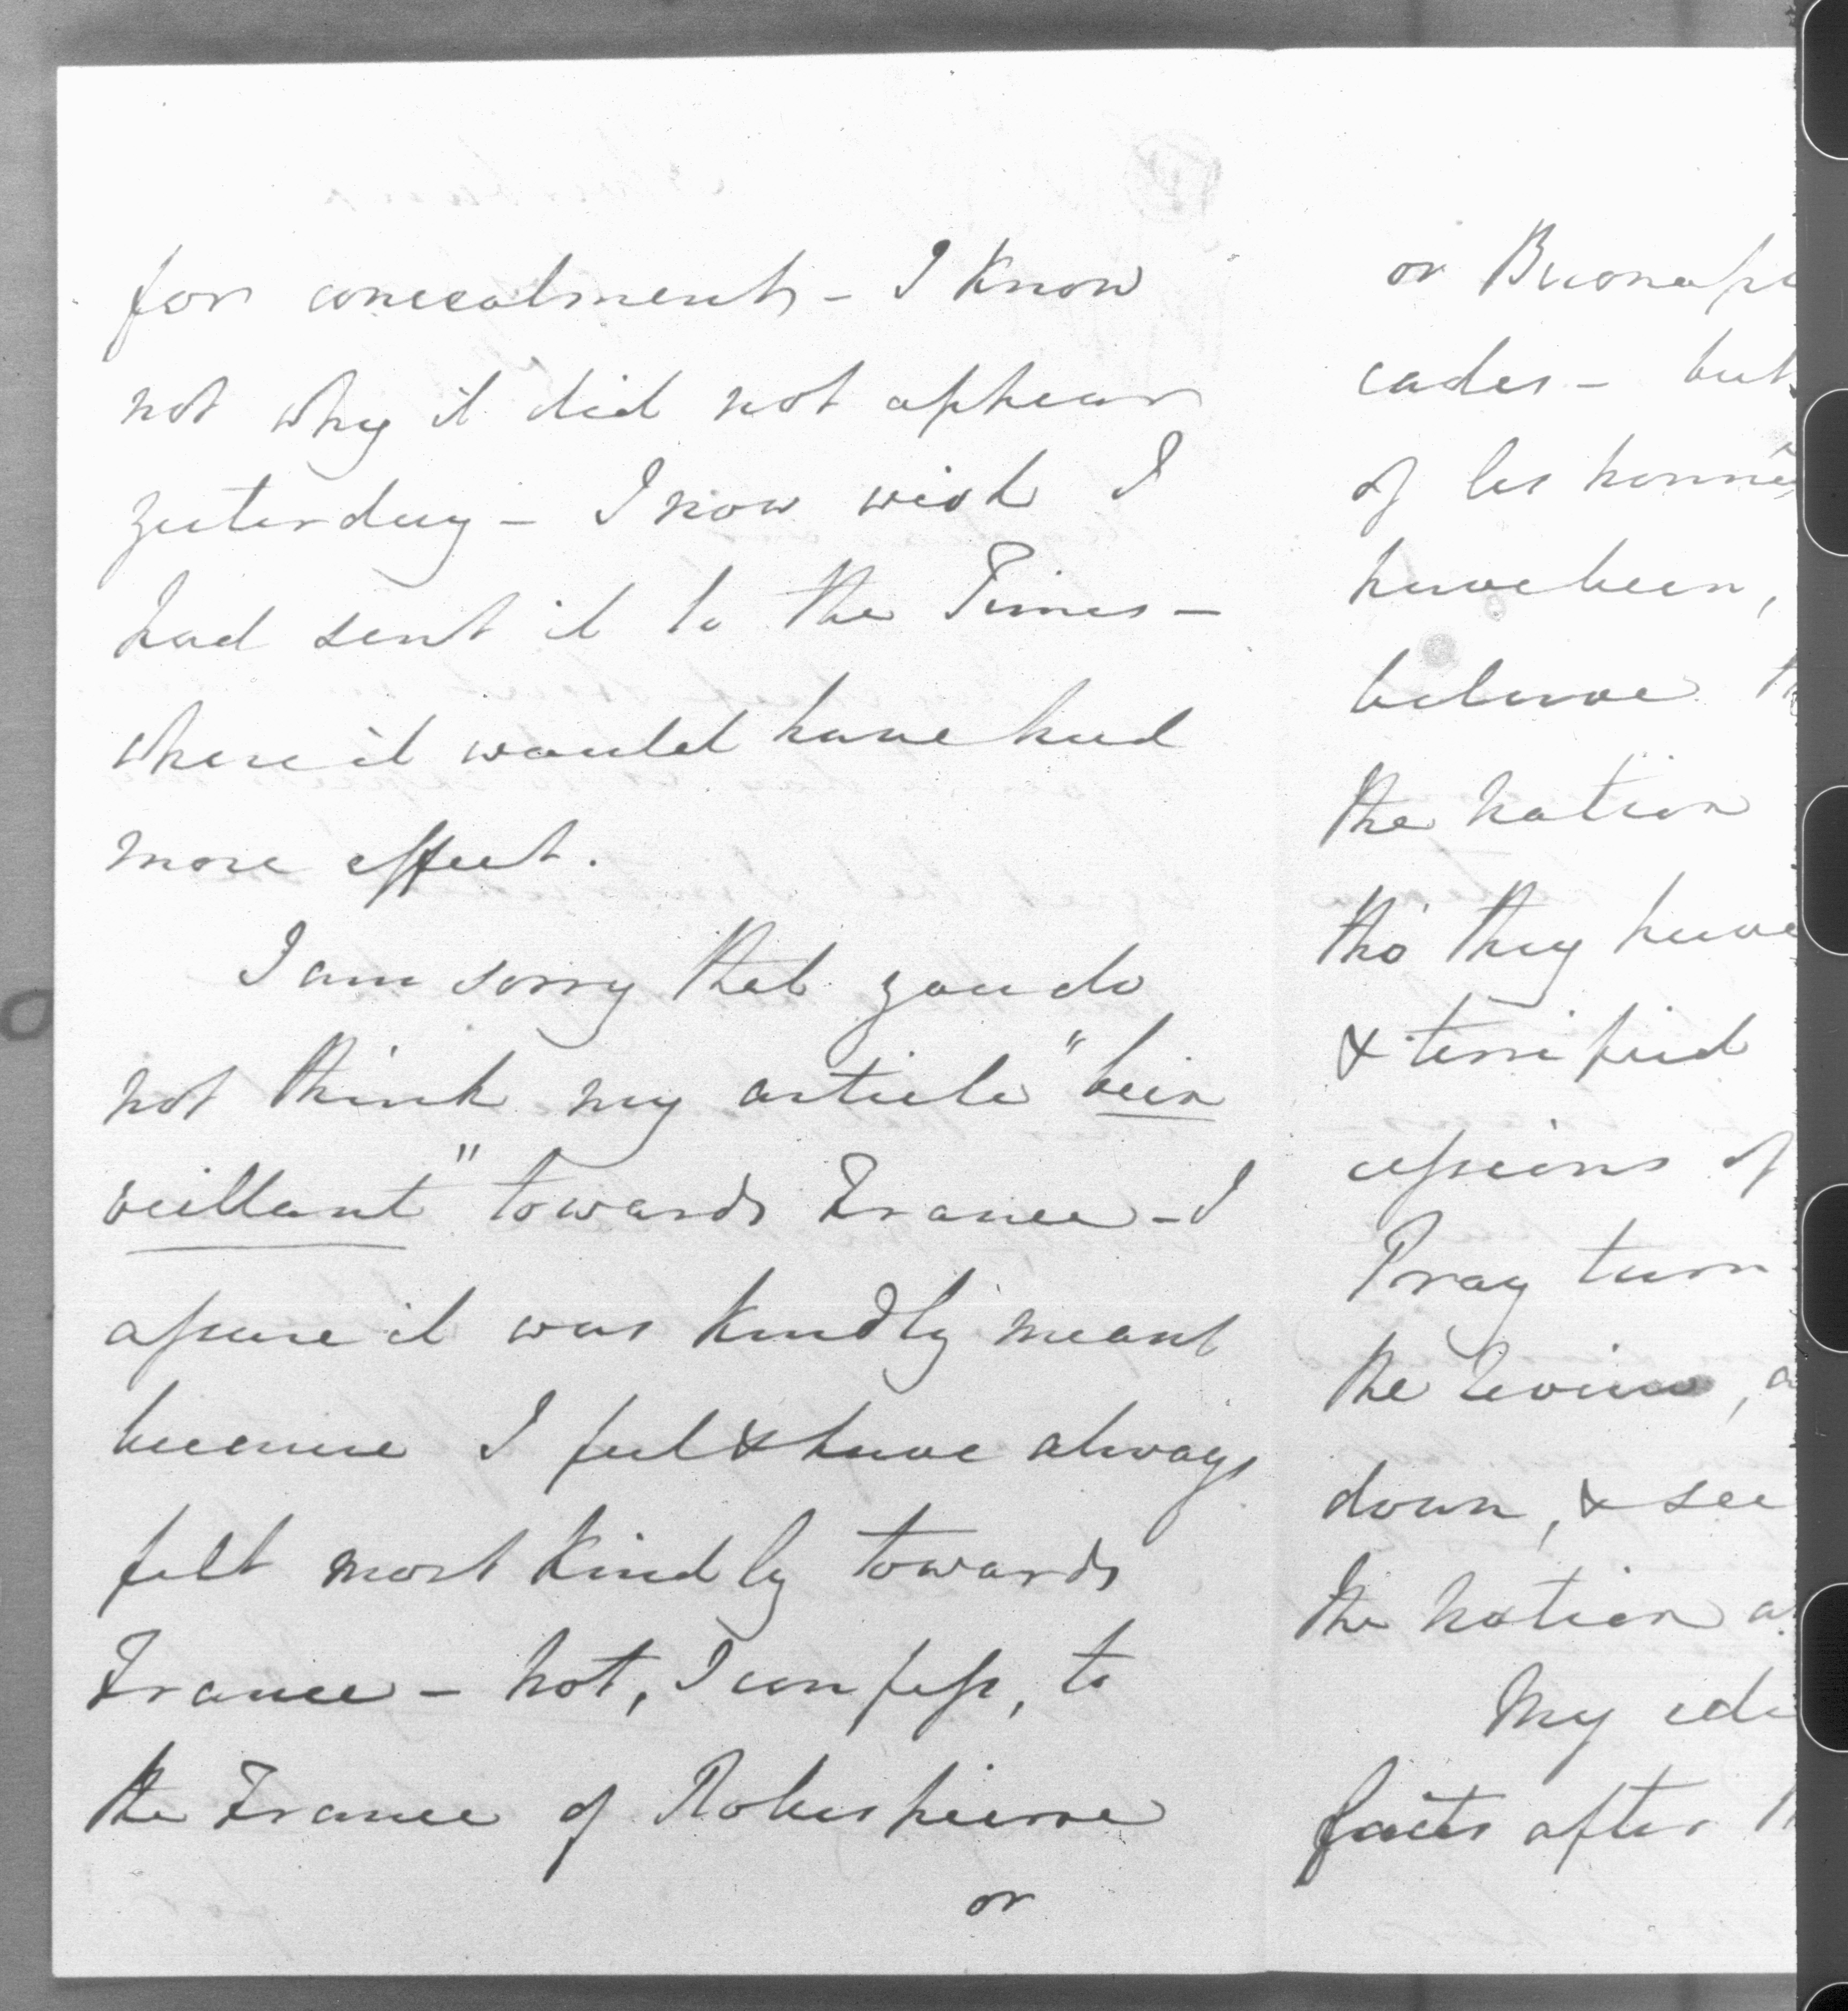 for concealment - I know
not why it did not appear
yesterday - I now wish I
had sent it to the Times -
where it would have had
more effect.
I am sorry that you do
not think my article "bien
veillant" towards France - I
assure it was kindly meant
because I feel & have always
felt most kindly towards
France - not, I confess, to
the France of Robespierre
or
or Buonapa
cades - but
of les honnê
have been,
believe th
the nation
tho' they have
& terrified
cessions of
Pray turn
the
down, & see
the nation a
My
facts after